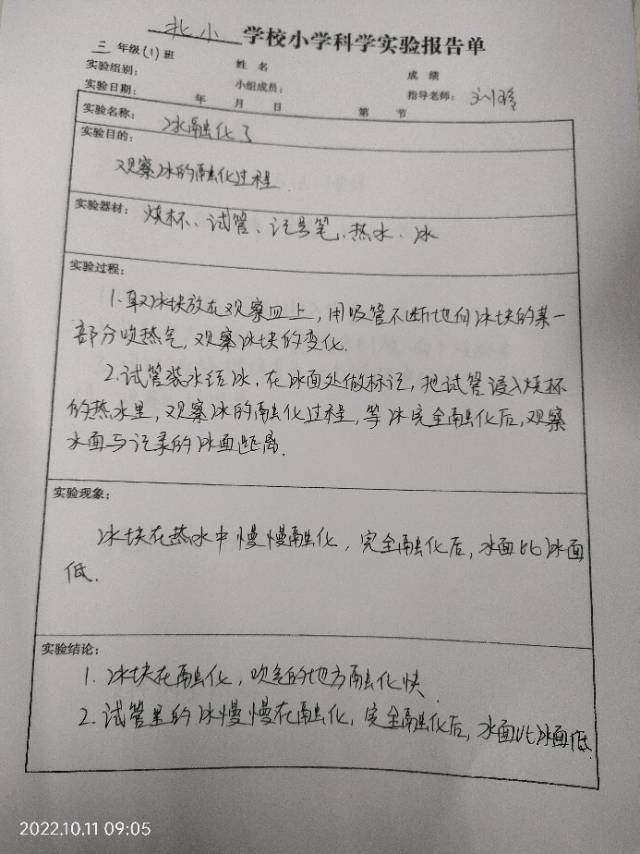 北小 学校小学科学实验报告单
三 年级(1)班
实验组别： 姓 名 成 绩
实验日期： 年 月 日 小组成员： 第 节 指导老师：刘
实验名称： 冰融化了
实验目的：
观察冰的融化过程.
实验器材： 烧杯、试管、记号笔、热水、冰
实验过程：
1.取冰块放在观察皿上，用吸管不断地向冰块的某一
部分吹热气，观察冰块的变化.
2.试管装水结冰，在冰面处做标记，把试管浸入烧杯
的热水里，观察冰的融化过程，等冰完全融化后，观察
水面与记录的冰面距离.
实验现象：
冰块在热水中慢慢融化，完全融化后，水面比冰面
低.
实验结论：
1.冰块在融化，吹气的地方融化快.
2.试管里的冰慢慢在融化，完全融化后，水面比冰面低.
2022.10.11 09:05